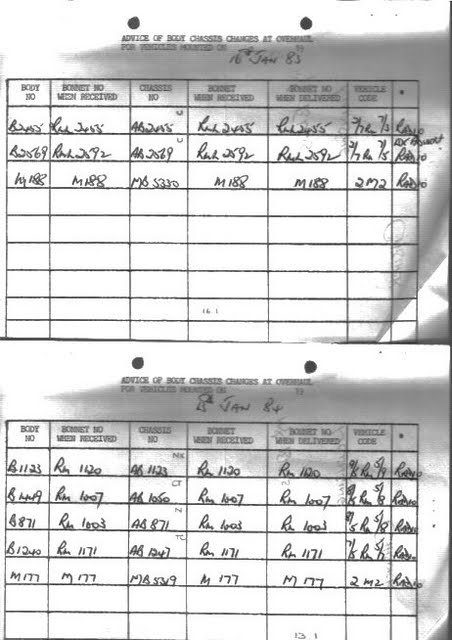 ADVICE OF BODY CHASSIS CHANGES AT OVERHAUL
FOR VEHICLES MOUNTED ON 19
JAN 83
BODY NO BONNET NO WHEN RECEIVED CHASSIS NO BONNET WHEN RECEIVED BONNET NO WHEN DELIVERED VEHICLE CODE *
U
B2455 RML 2455 AB2455 RML 2455 RML 2455 RADIO
U
B2569 RML 2592 AB 2569 RML 2592 RML 2592 RADIO
M188 M188 MB 5330 M188 M188 2 M2 RADIO
16.1
ADVICE OF BODY CHASSIS CHANGES AT OVERHAUL
FOR VEHICLES MOUNTED ON 19
JAN 84
BODY NO BONNET NO WHEN RECEIVED CHASSIS NO BONNET WHEN RECEIVED BONNET NO WHEN DELIVERED VEHICLE CODE *
NX
B1123 RM 1120 AB 1123 RM 1120 RM 1120 RADIO
CT
RM 1007 AB 1050 RM 1007 RM 1007 RADIO
N
B871 RM 1003 AB 871 RM 1003 RM 1003 RADIO
TC
B1240 RM 1171 AB 1247 RM 1171 RM 1171 RADIO
M177 M 177 MB 5319 M 177 M 177 2 M2 RADIO
13.1